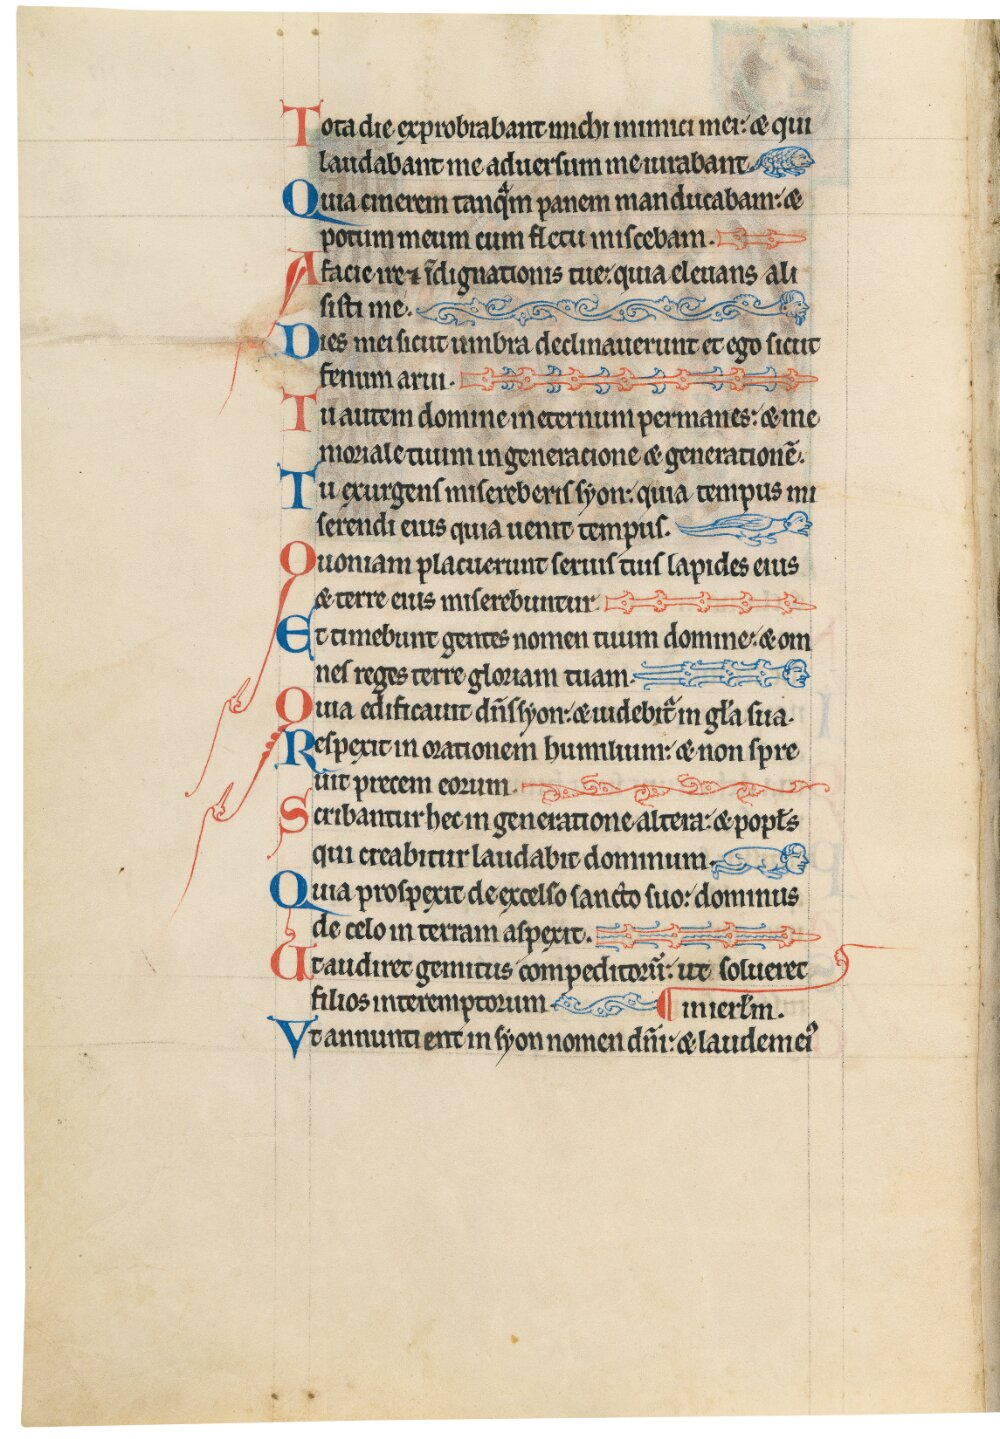 Tota die exprobrabant michi inimici mei: & qui
laudabant me aduersum me iurabant.
Quia cinerem tanqᷓm panem manducabam: &
potum meum cum fletu miscebam.
A facie ire ⁊ īdignationis tue: quia eleuans ali
sisti me.
Dies mei sicut umbra declinauerunt et ego sicut
fenum arui.
Tu autem domine in eternum permanes: & me
moriale tuum in generacione & generationē.
Tu exurgens misereberis syon: quia tempus mi
serendi eius quia uenit tempus.
Quoniam placuerunt seruis tuis lapides eius
& terre eius miserebuntur.
Et timebunt gentes nomen tuum domine: & om
nes reges terre gloriam tuam.
Quia edificauit dn̄s syon: & uidebit᷑ in gl̄a sua.
Respexit in orationem humilium: & non spre
uit precem eorum.
Scribantur hec in generatione altera: & popl̄s
qui creabitur laudabit dominum.
Quia prospexit de excelso sancto suo: dominus
de celo in terram aspexit.
Ut audiret gemitus compeditorū: ut solueret
filios interemptorum ¶ in ierl̄m.
Vt annunti ent in syon nomen dn̄i: & laudem eiꝰ